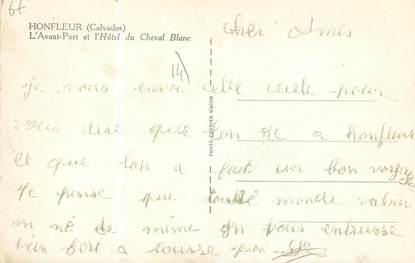 6f
HONFLEUR (Calvados)
L'Avant-Port et l'Hôtel du Cheval Blanc
Cher Amis
14
je vous envoi cette carte pour
vous dire que lon é a honfleur
et que lon a fait un bon voyage
Je pense que tout monde va bien
on né de même on vous
bien fort a tousse
PHOTO-COURRIER HACON